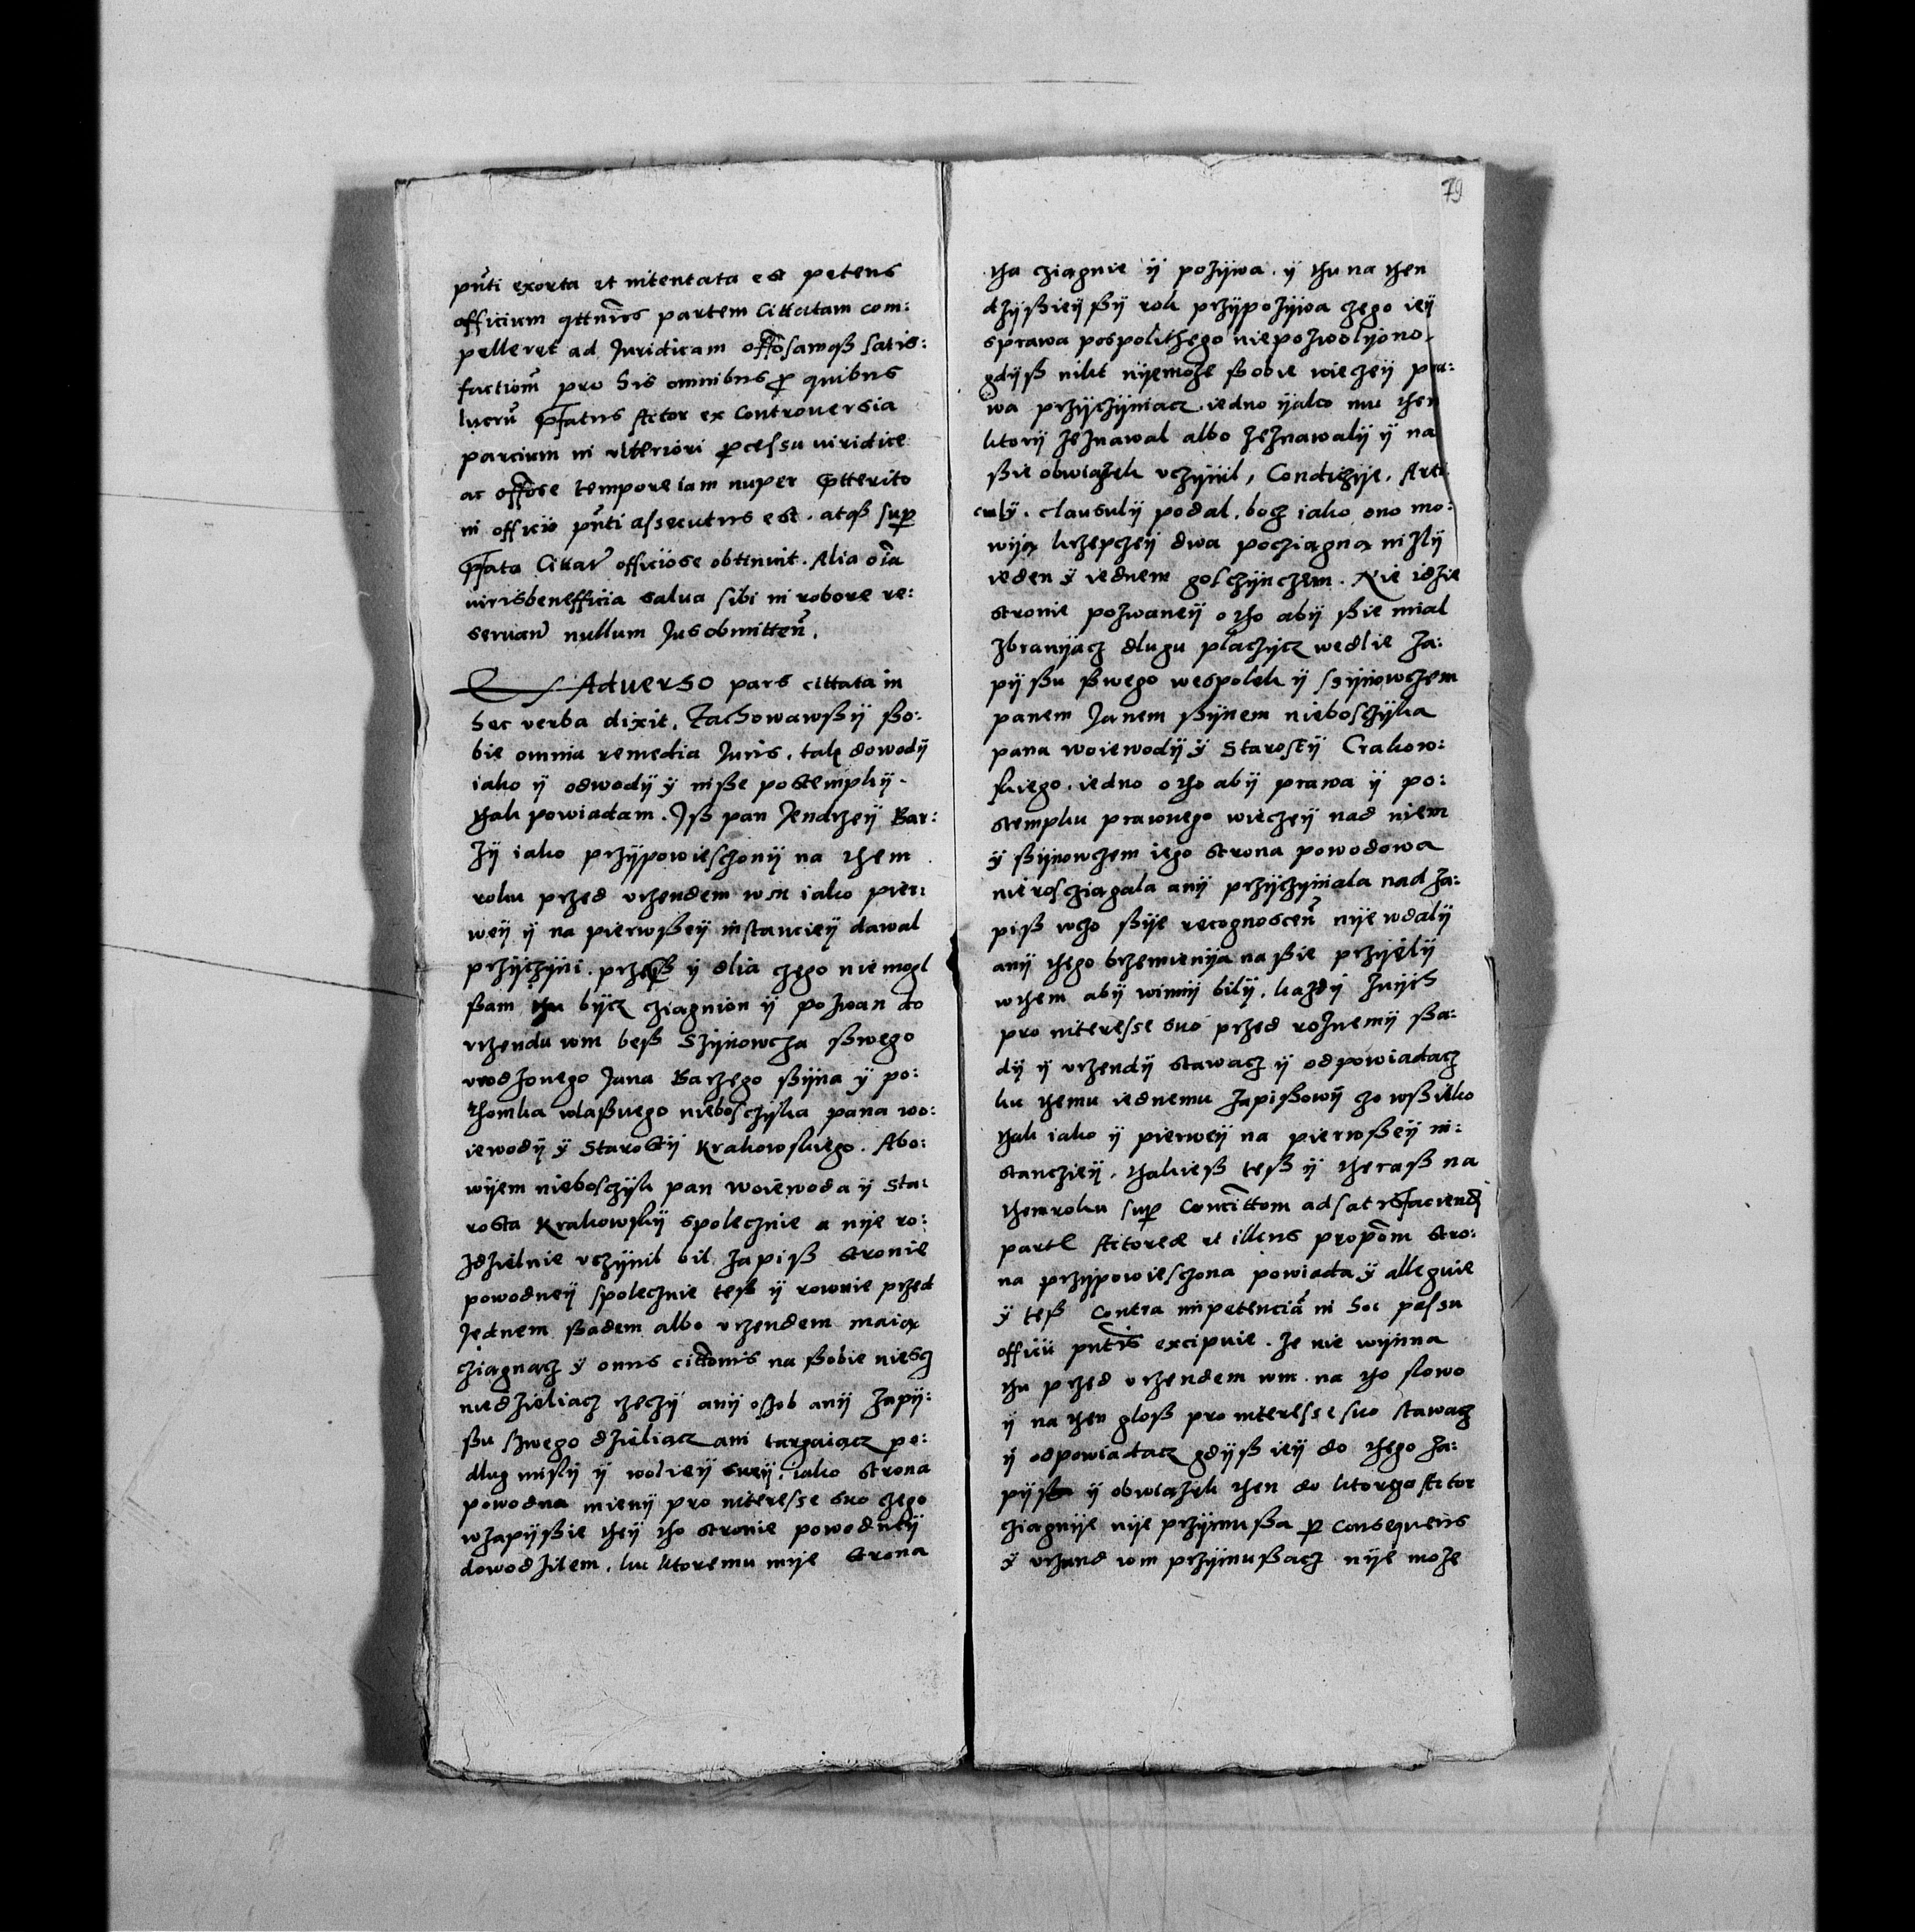 pñti exorta et intentata est petens
officium qttnũs partem Cittatam com:
pelleret ad Juridicam offosamqß satis:
factionẽ pro his omnibus pro quibus
lucrũ pfatus Actor ex Controuersia
parcium in vlteriori pcessu viridice
ac offose tempore iam nuper ptterito
in officio pñti assecutus est. atqß sup
pfata Cittaõ officiose obtinuit. Alia oĩa
iurisbenefficia salua sibi in robore re:
seruañ nullum Jus obmitteñ.
Aduerso pars cittata in
hec verba dixit. Zachowawßÿ ßo:
bie omnia remedia Juris, tak dowodÿ
iako ÿ odwodÿ ÿ niße postempkÿ.
thak powiadam. Jß pan Jendrzeÿ Bar:
zÿ iako przÿpowieschonÿ na them
roku przed vrzendem wm iako pier:
weÿ ÿ na pierwßeÿ instancieÿ dawal
przÿczÿni. przeß ÿ dlia czego nie mogl
ßam thu bÿcz cziagnion ÿ pozwan do
vrzendu wm beß Szÿnowcza ßwego
vrodzonego Jana Barzego ßÿna ÿ po:
thomka wlaßnego nieboschÿka pana wo:
iewodÿ ÿ Starostÿ Krakowskiego. Abo:
wÿem nieboschÿk pan woiewoda ÿ sta:
rosta Krakowskÿ spolecznie a nÿe ro:
zdzielnie vczÿnil bil zapiß stronie
powodneÿ spolecznie teß ÿ rownie przed
Jednem ßadem albo vrzendem maia
cziagnacz ÿ onus cittonis na ßobie niescz
niedzieliacz rzeczÿ anÿ osob anÿ zapÿ:
ßu szwego dzieliacz ani targaiacz po:
dlug misly ÿ wolieÿ sweÿ. iako strona
powodna mienÿ pro interesse suo czego
wzapÿßie theÿ tho stronie powodneÿ
dowodzilem. ku ktoremu mÿe strona
79
tha cziagnie ÿ pozÿwa. ÿ thu na then
dzÿßieÿßÿ rok przÿpozÿwa czego ieÿ
sprawa pospolithego niepozwolÿono.
gdÿß nikt nÿemoze ßobie wieczeÿ pra:
wa przÿczÿniacz. iedno ÿako mu then
ktorÿ zeznawal albo zeznawalÿ ÿ na
ßie obwiazek vczÿnil, Condiczÿe. Arti
culÿ. clausulÿ podal. bocz iako ono mo:
wÿa krzepczeÿ dwa pocziagna nizlÿ
ieden ÿ iednem goschÿnczem. Nie idzie
stronie pozwaneÿ o tho abÿ ßie mial
zbranÿacz dlugu placzÿcz wedlie za:
pÿßu ßwego wespolek ÿ sÿnowczem
panem Janem ßÿnem nieboschÿka
pana woiewodÿ ÿ Starostÿ Crakow:
skiego. iedno o tho abÿ prawa ÿ po:
stempku prawnego wieczeÿ nad niem
ÿ ßÿnowczem iego strona powodowa
nierosciagala anÿ przÿczÿniala nad za:
piß wcho ßÿe recognosceñ nÿe wdalÿ
anÿ thego brzemienÿa na ßie przÿelÿ
wthem abÿ winnÿ bilÿ. kazdÿ znÿch
pro interesse suo przed roznemÿ ßa:
dÿ ÿ vrzendÿ stawacz ÿ odpowiadacz
ku themu iednemu zapißowÿ czo wßitko
thak iako ÿ pierweÿ na pierwßeÿ in:
stanczieÿ. thakieß teß ÿ theraß na
themroku sup Concittom ad satisfaciend
parte Actorea et illius propom stro:
na przÿpowieschona powiada ÿ alleguie
ÿ teß Contra inpetenciã in hoc passu
officii pñtis excipuie. ze nie wÿnna
thu przed vrzendem wm. na tho slowo
ÿ na then gloß pro interesse suo stawacz
ÿ odpowiadacz gdÿß ieÿ do thego za:
pÿßu ÿ obwiazek then do ktorego Actor
cziagnÿe nÿe przÿmußa p consequens
ÿ vrzend wm przÿmußacz nÿe moze